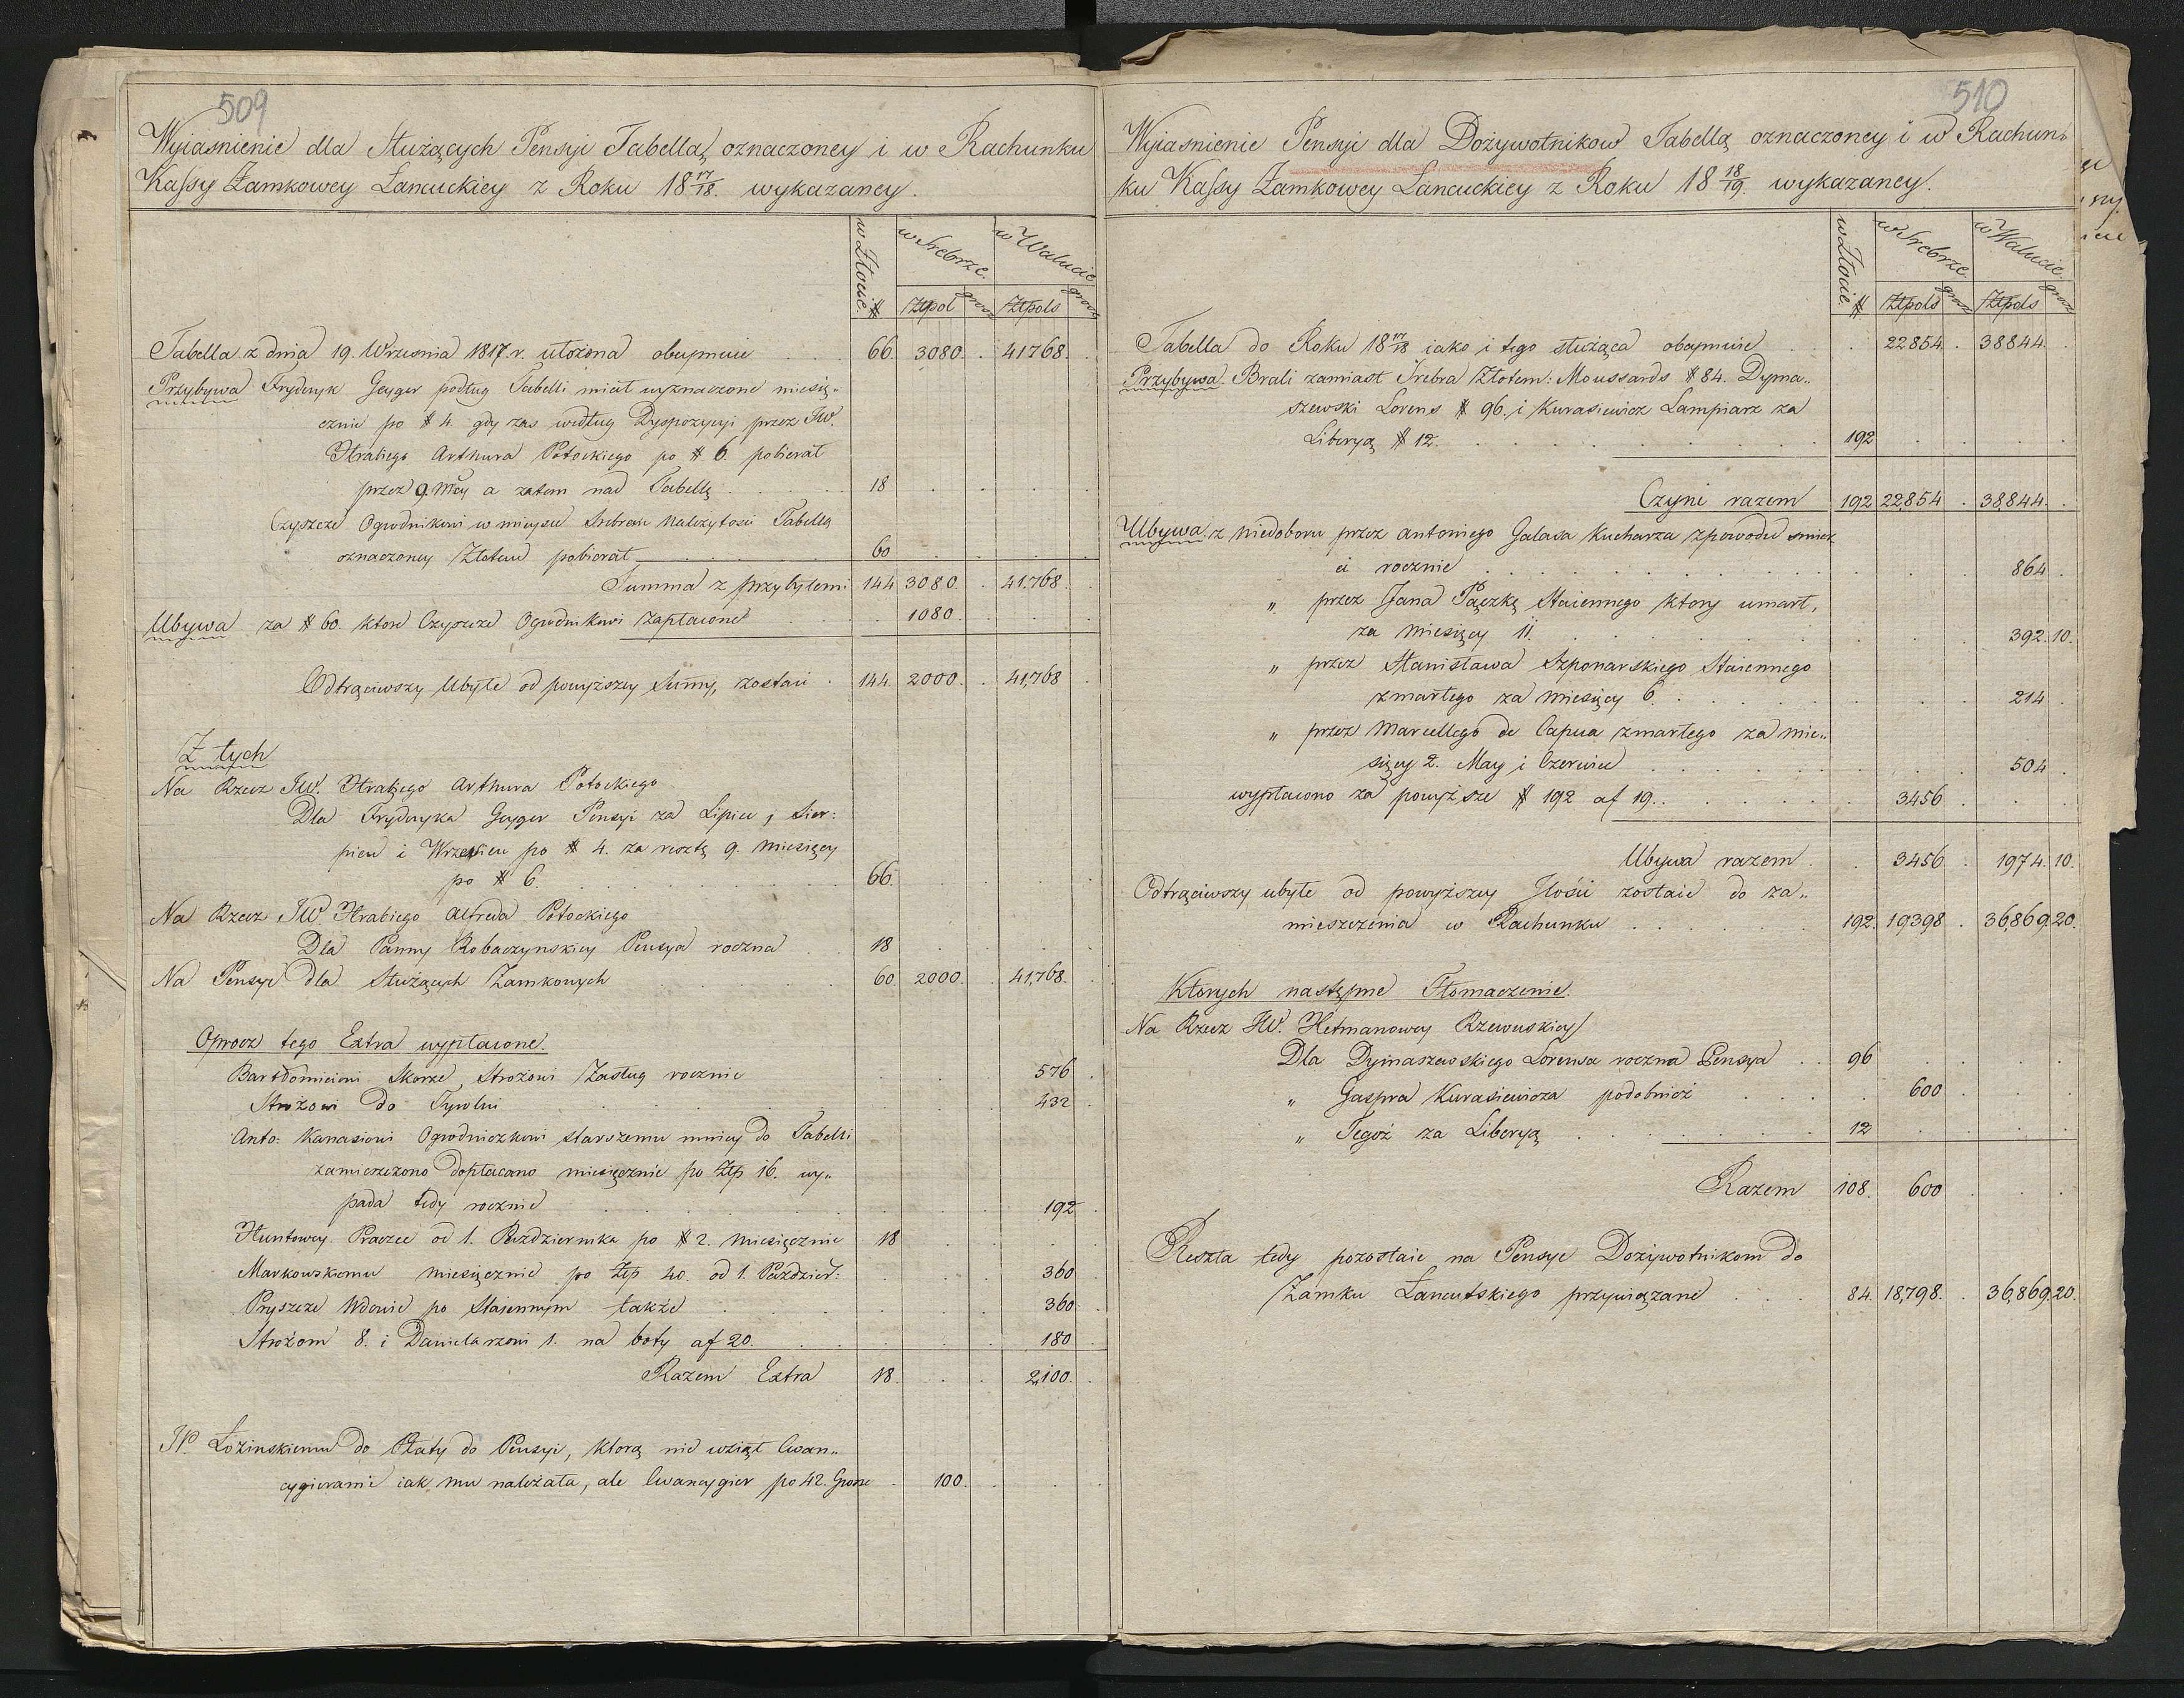 509
Wyiasnienie dla Służących Pensyi Tabellą oznaczoney i w Rachunku
Kassy Zamkowey Lancuckiey z Roku 18 17/18. wykazaney.
w Złocie. #
w Srebrze.
w Walucie
Ztpol
grosz
Ztpols
grosz
Tabella z dnia 19. Wrzesnia 1817. r. ułożona obeymuie 66. 3080. 41768.
Przybywa Fryderyk Geyger podług Tabelli miał wyznaczone miesię„
cznie po # 4. gdy zas według Dyspozycyi przez JW.
Hrabiego Arthura Potockiego po # 6. pobierał
przez 9. Mcy a zatem nad Tabellę 18
Czyszcze Ogrodnikowi w mieysce Srebrem należytosci Tabellą
oznaczoney Złotem pobierał 60
Summa z przybyłemi 144 3080. 41.768.
Ubywa za # 60. ktore Czyszcze Ogrodnikowi zapłacone 1080.
Odtrąciwszy Ubyłe od powyższey Sumy, zostaie 144. 2000. 41,768
Z tych
Na Rzecz JW. Hrabiego Arthura Potockiego
Dla Fryderyka Geyger Pensyi za Lipiec, Sier:
pien i Wrzesien po # 4. za resztę 9. miesięcy
po # 6. 66.
Na Rzecz JW Hrabiego Alfreda Potockiego
Dla Panny Robaczynskiey Pensya roczna 18
Na Pensye dla Służących Zamkowych 60. 2000. 41,768.
Oprocz tego Extra wypłacone.
Bartłomieiowi Skorze, Strożowi Zasług rocznie 576
Strożowi do Tyrolui 432
Anto: Kanasiowi Ogrodniczkowi starszemu mniey do Tabelli
zamieszczono dopłacano miesięcznie po Ztp 16. wy„
pada tedy rocznie 192
Huntowey Praczce od 1. Pazdziernika po # 2. miesięcznie 18
Markowskiemu miesięcznie po Ztp 40. od 1. Pazdzier: 360
Pryszcze Wdowie po Staiennym także 360.
Strożom 8. i Danielarzowi 1. na boty af 20. 180
Razem Extra 18. 2,100.
JP. Łozinskiemu do Płaty do Pensyi, ktorą nie wziął Cwan„
cygierami iak mu należała, ale Cwancygier po 42. Grosze 100.
510
Wyiasnienie Pensyi dla Dożywotnikow Tabellą oznaczoney i w Rachun„
ku Kassy Zamkowey Lancuckiey z Roku 18 18/19. wykazaney.
w Złocie. #
w Srebrze.
w Walucie.
Ztpols
grosz
Ztpols
grosz
Tabella do Roku 18 17/18 iako i tego służąca obeymuie 22854. 38844.
Przybywa. Brali zamiast Srebra Złotem: Moussards # 84. Dyma„
szewski Lorens # 96. i Kurasiewicz Lampiarz za
Liberyą # 12. 192
Czyni razem 192 22,854 38,844.
Ubywa. z niedoboru przez Antoniego Galasa Kucharza z powodu smier„
ci rocznie 864
„ przez Jana Pączkę Staiennego ktory umarł,
za miesięcy 11. 392. 10.
„ przez Stanisława Szponarskiego Staiennego
zmarłego za miesięcy 6. 214
„ przez Marcellego de Capua zmarłego za mie„
sięcy 2. May i Czerwiec 504
wypłacono za powyższe # 192 af 19. 3456
Ubywa razem. 3456 1974. 10.
Odtrąciwszy ubyłe od powyższey Ilości zostaie do za„
mieszczenia w Rachunku 192. 19398 36,869. 20.
Ktorych następne Tłomaczenie.
Na Rzecz JW. Hetmanowey Rzewuskiey
Dla Dymaszewskiego Lorensa roczna Pensya 96
„ Gaspra Kurasiewicza podobnież 600
„ Tegoż za Liberyą 12
Razem 108. 600
Reszta tedy pozostaie na Pensye Dożywotnikom do
Zamku Łancutskiego przywiązane 84. 18,798. 36,869. 20.